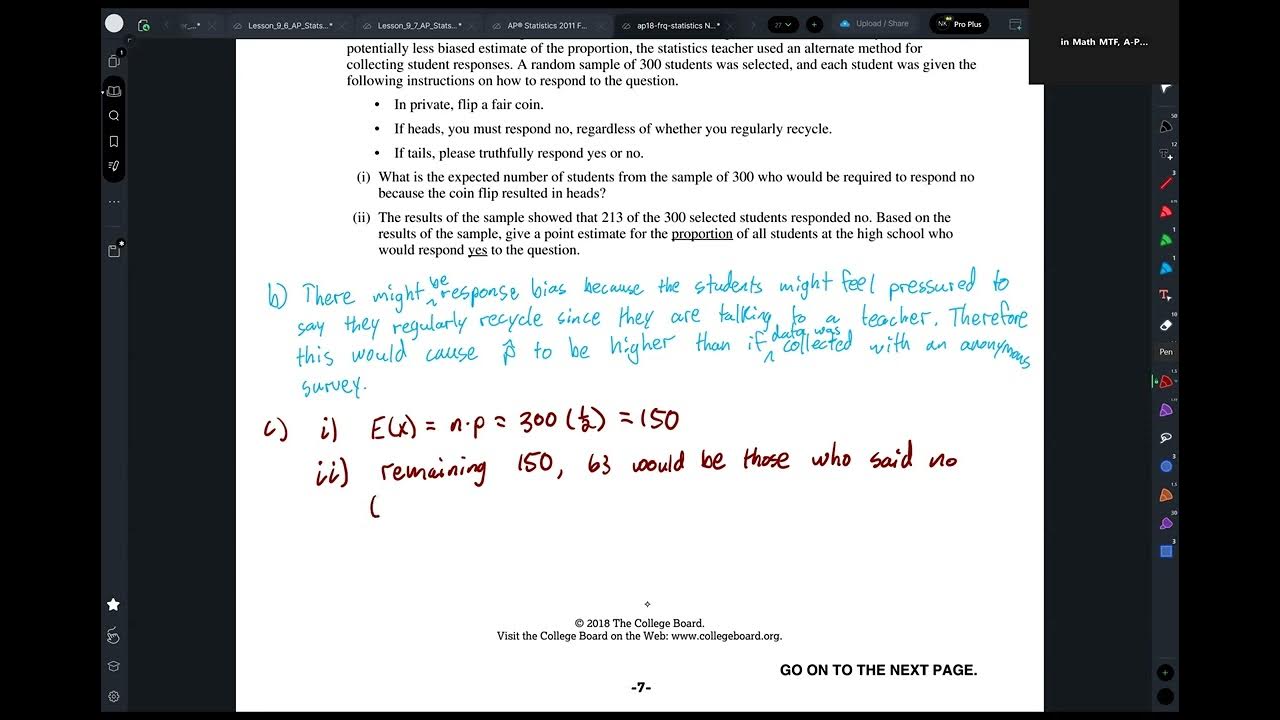 er_...*
Lesson_9_6_AP_Stats...*
Lesson_9_7_AP_Stats...*
AP® Statistics 2011 F...
ap18-frq-statistics N...*
27
Upload / Share
NK
Pro Plus
in Math MTF, A-P...
potentially less biased estimate of the proportion, the statistics teacher used an alternate method for
collecting student responses. A random sample of 300 students was selected, and each student was given the
following instructions on how to respond to the question.
• In private, flip a fair coin.
• If heads, you must respond no, regardless of whether you regularly recycle.
• If tails, please truthfully respond yes or no.
(i) What is the expected number of students from the sample of 300 who would be required to respond no
because the coin flip resulted in heads?
(ii) The results of the sample showed that 213 of the 300 selected students responded no. Based on the
results of the sample, give a point estimate for the proportion of all students at the high school who
would respond yes to the question.
b) There might be response bias because the students might feel pressured to
say they regularly recycle since they are talking to a teacher. Therefore
this would cause p̂ to be higher than if data was collected with an anonymous
survey.
c) i) E(x) = n·p = 300 (1/2) = 150
ii) remaining 150, 63 would be those who said no
(
© 2018 The College Board.
Visit the College Board on the Web: www.collegeboard.org.
GO ON TO THE NEXT PAGE.
-7-
Pen